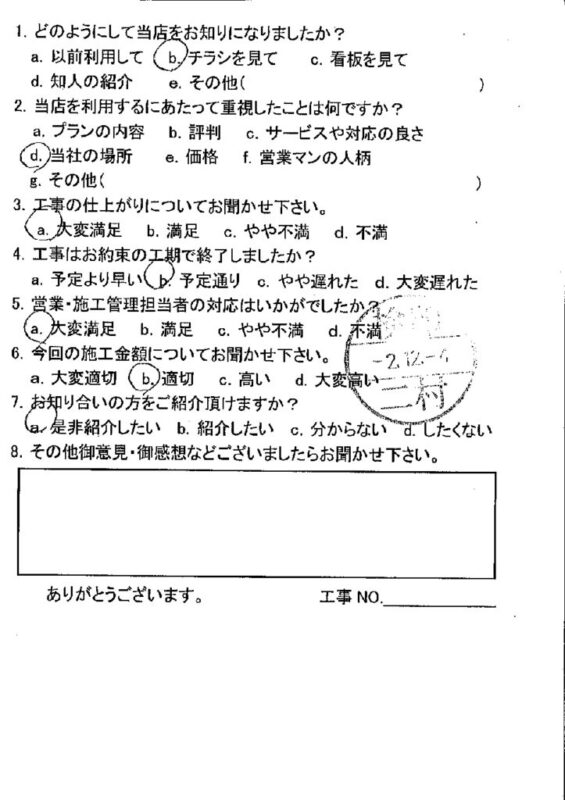 1. どのようにして当店をお知りになりましたか？
a. 以前利用して b. チラシを見て c. 看板を見て
d. 知人の紹介 e. その他( )
2. 当店を利用するにあたって重視したことは何ですか？
a. プランの内容 b. 評判 c. サービスや対応の良さ
d. 当社の場所 e. 価格 f. 営業マンの人柄
g. その他( )
3. 工事の仕上がりについてお聞かせ下さい。
a. 大変満足 b. 満足 c. やや不満 d. 不満
4. 工事はお約束の工期で終了しましたか？
a. 予定より早い b. 予定通り c. やや遅れた d. 大変遅れた
5. 営業・施工管理担当者の対応はいかがでしたか？
a. 大変満足 b. 満足 c. やや不満 d. 不満
6. 今回の施工金額についてお聞かせ下さい。
a. 大変適切 b. 適切 c. 高い d. 大変高い
-2.12.-4
二村
7. お知り合いの方をご紹介頂けますか？
a. 是非紹介したい b. 紹介したい c. 分からない d. したくない
8. その他御意見・御感想などございましたらお聞かせ下さい。
ありがとうございます。 工事 NO.